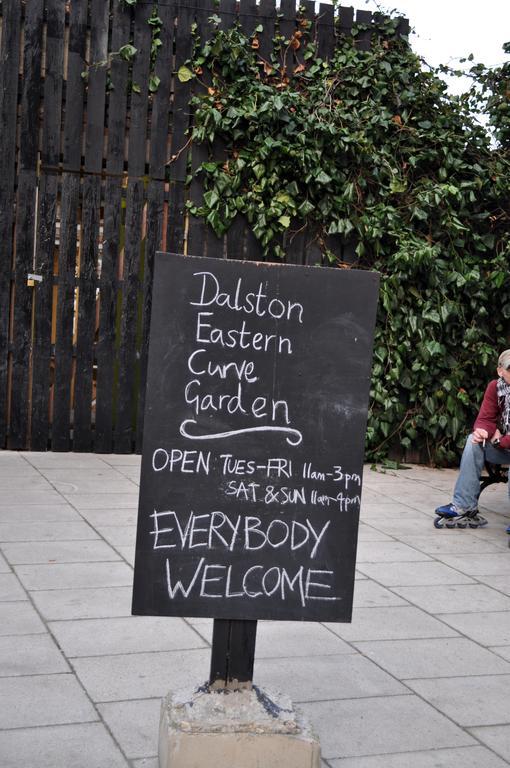 Dalston
Eastern
Curve
Garden
OPEN TUES-FRI 11am-3pm
SAT & SUN 11am-4pm
EVERYBODY
WELCOME